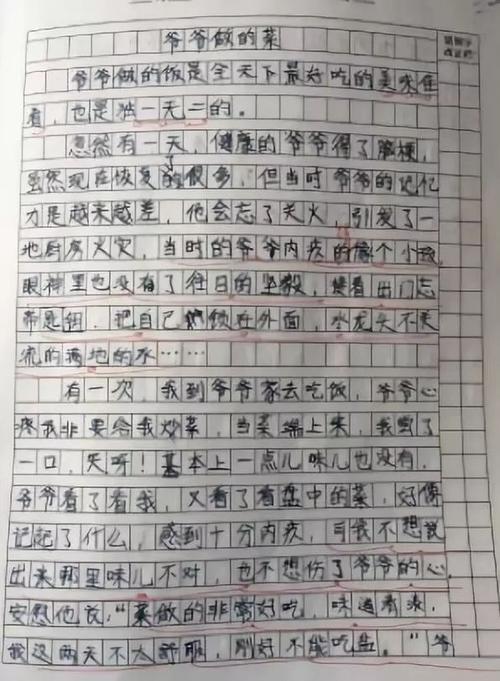 爷爷做的菜
爷爷做的饭是全天下最好吃的美味佳
肴，也是独一无二的。
忽然有一天，健康的爷爷得了脑梗，
虽然现在恢复了很多，但当时爷爷的记忆
力是越来越差，他会忘了关火，引发了一
地厨房火灾，当时的爷爷内疚的像个小孩
眼神里也没有了往日的坚毅，接着出门忘
带匙钥，把自己锁在外面，水龙头不关
流的满地的水……
有一次，我到爷爷家去吃饭，爷爷心
疼我非要给我炒菜，当菜端上来，我尝了
一口，天呀！基本上一点儿味儿也没有，
爷爷看了看我，又看了看盘中的菜，好像
记起了什么，感到十分内疚，可我不想说
出来那里味儿不对，也不想伤了爷爷的心，
安慰他说：“菜做的非常好吃，味道清淡，
我这两天不太舒服，刚好不能吃盐。”爷